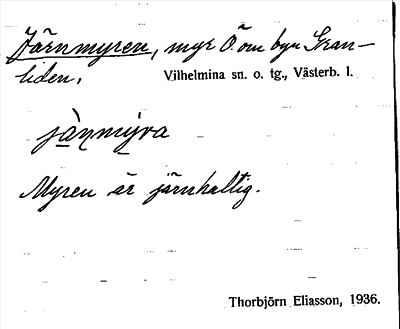 Järnmyren, myr Ö. om byn Gran-
liden. Vilhelmina sn. o. tg., Västerb. l.
jànmýra
Myren är järnhaltig.
Thorbjörn Eliasson, 1936.